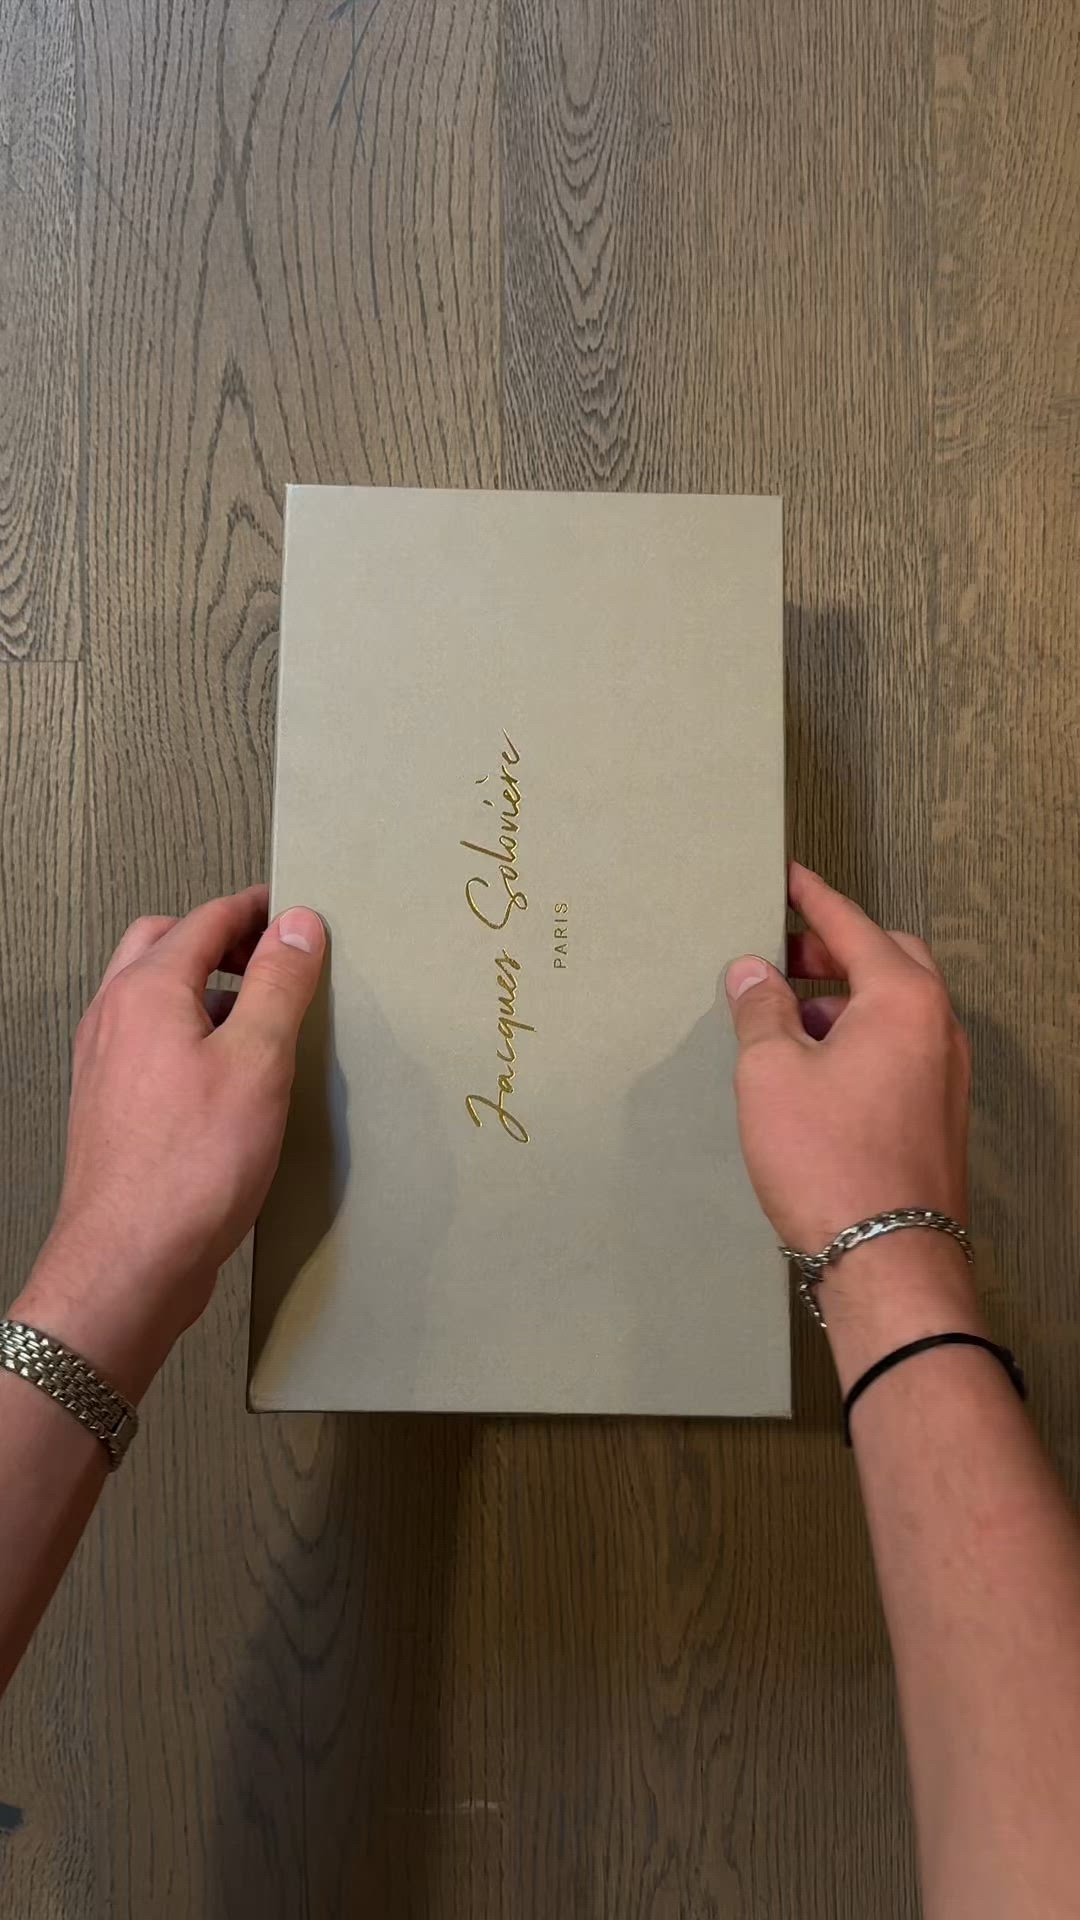 Jacques Solovière
PARIS